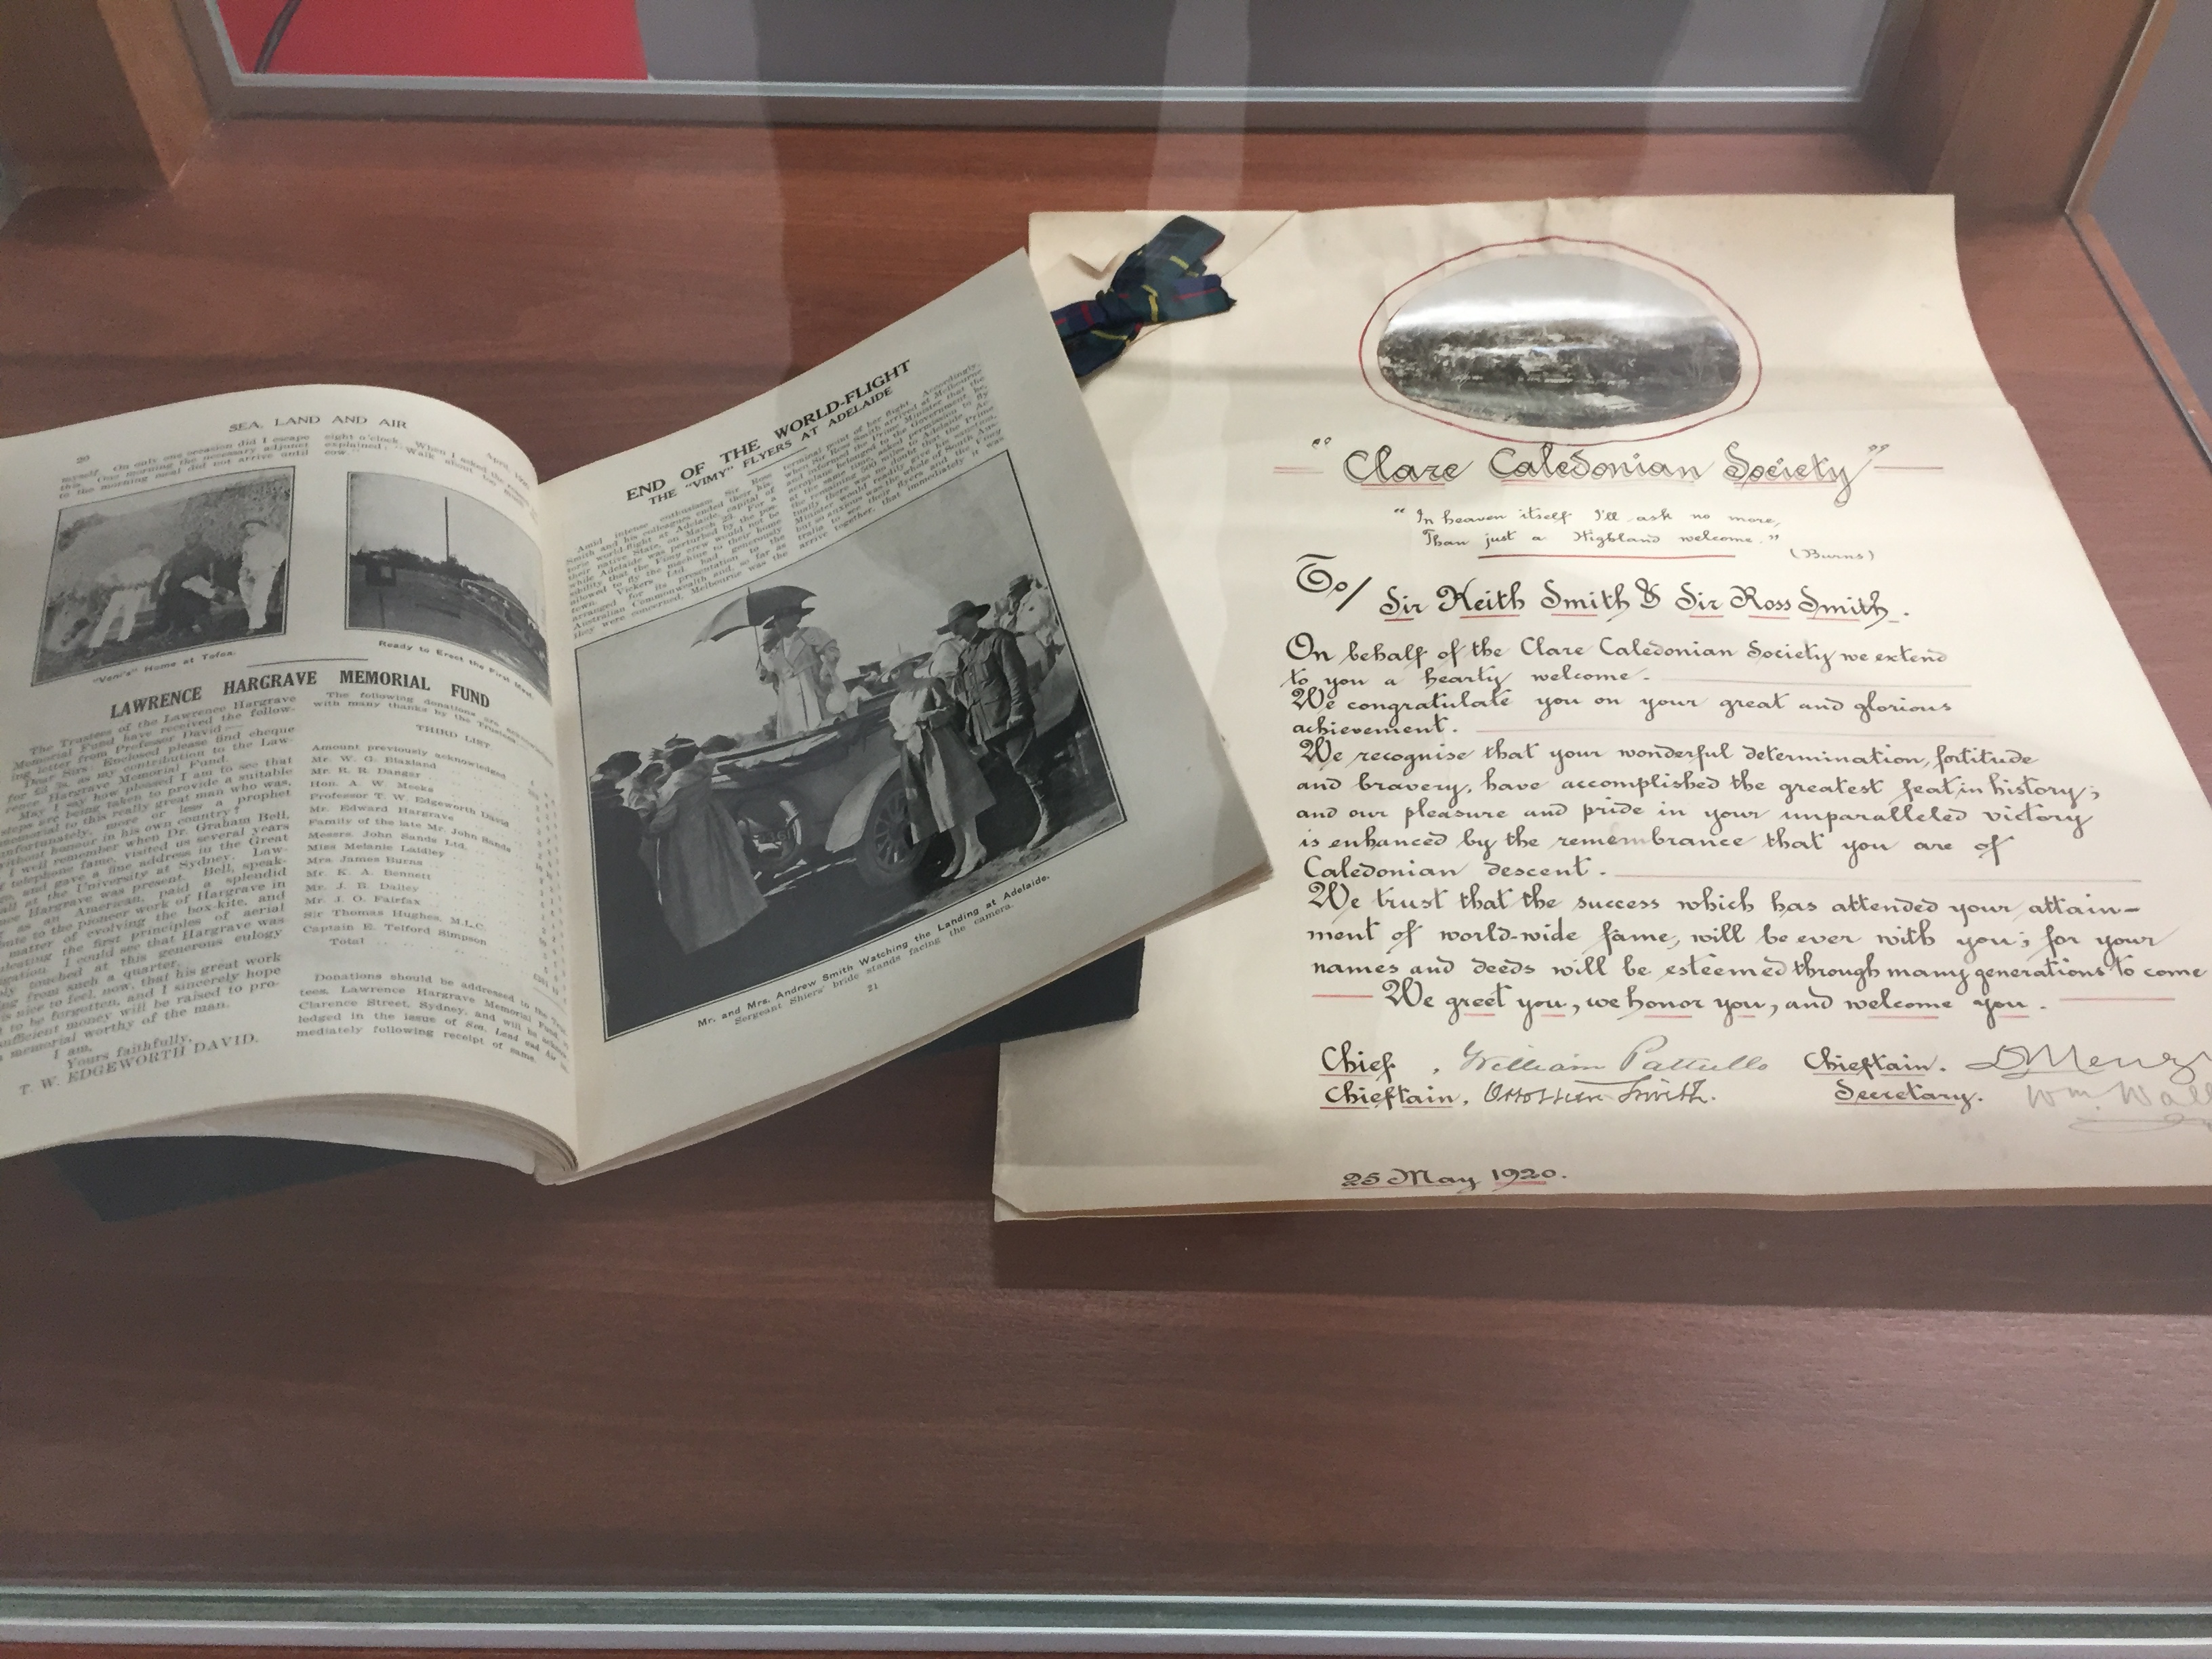 20
SEA, LAND AND AIR
April, 1920
myself. On only one occasion did I escape
this. One morning the necessary adjunct
to the morning meal did not arrive until
eight o'clock. When I asked the
explained: "Walk about
cow."
"Veni's" Home at Tofoa.
Ready to Erect the First Mast.
LAWRENCE HARGRAVE MEMORIAL FUND
The Trustees of the Lawrence Hargrave
Memorial Fund have received the follow-
ing letter from Professor David:—
Dear Sirs: Enclosed please find cheque
for £3 3s. as my contribution to the Law-
rence Hargrave Memorial Fund.
May I say how pleased I am to see that
steps are being taken to provide a suitable
memorial to this really great man who was,
unfortunately, more or less a prophet
without honour in his own country?
I well remember when Dr. Graham Bell,
of telephone fame, visited us several years
and gave a fine address in the Great
Hall at the University at Sydney. Law-
rence Hargrave was present. Bell, speak-
as an American, paid a splendid
tribute to the pioneer work of Hargrave in
matter of evolving the box-kite, and
the first principles of aerial
I could see that Hargrave was
touched at this generous eulogy
from such a quarter.
is nice to feel, now, that his great work
to be forgotten, and I sincerely hope
sufficient money will be raised to pro-
memorial worthy of the man.
I am,
Yours faithfully,
T. W. EDGEWORTH DAVID.
The following donations are acknowledged
with many thanks by the Trustees:
THIRD LIST.
Amount previously acknowledged
Mr. W. G. Blaxland
Mr. R. R. Dangar
Hon. A. W. Meeks
Professor T. W. Edgeworth David
Mr. Edward Hargrave
Family of the late Mr. John Sands
Messrs. John Sands Ltd.
Miss Melanie Laidley
Mrs. James Burns
Mr. K. A. Bennett
Mr. J. B. Dailey
Mr. J. O. Fairfax
Sir Thomas Hughes, M.L.C.
Captain E. Telford Simpson
Total
Donations should be addressed to the
tees, Lawrence Hargrave Memorial Fund,
Clarence Street, Sydney, and will be
ledged in the issue of Sea, Land and Air
mediately following receipt of same.
END OF THE WORLD-FLIGHT
THE "VIMY" FLYERS AT ADELAIDE
Amid intense enthusiasm Sir Ross
Smith and his colleagues ended their his-
toric world-flight at Adelaide, capital of
their native State, on March 23. For a
while Adelaide was perturbed by the pos-
sibility that the Vimy crew would not be
allowed to fly the machine to their home
town. Vickers Ltd. had generously
arranged for its presentation to the
Australian Commonwealth and, so far as
they were concerned, Melbourne was the
terminal point of her flight. Accordingly,
when Sir Ross Smith arrived at Melbourne
and informed the Prime Minister that the
aeroplane belonged to the Government, he,
at the same time, asked permission to fly
the remaining 500 miles to Adelaide. Ac-
tually there was no doubt that the Prime
Minister would readily give his sanction,
but so anxious was the whole of South Aus-
tralia to see their flyers and the Vimy
arrive together, that immediately it was
Mr. and Mrs. Andrew Smith Watching the Landing at Adelaide.
Sergeant Shiers' bride stands facing the camera.
21
"Clare Caledonian Society"
"In heaven itself I'll ask no more,
Than just a Highland welcome."
(Burns)
To/ Sir Keith Smith & Sir Ross Smith.
On behalf of the Clare Caledonian Society we extend
to you a hearty welcome.
We congratulate you on your great and glorious
achievement.
We recognise that your wonderful determination, fortitude
and bravery, have accomplished the greatest feat in history;
and our pleasure and pride in your unparalleled victory
is enhanced by the remembrance that you are of
Caledonian descent.
We trust that the success which has attended your attain-
ment of world-wide fame, will be ever with you; for your
names and deeds will be esteemed through many generations to come
We greet you, we honor you, and welcome you.
Chief, William Pattullo Chieftain. D Menz
Chieftain, Smith. Secretary. Wm. Wall
25 May 1920.